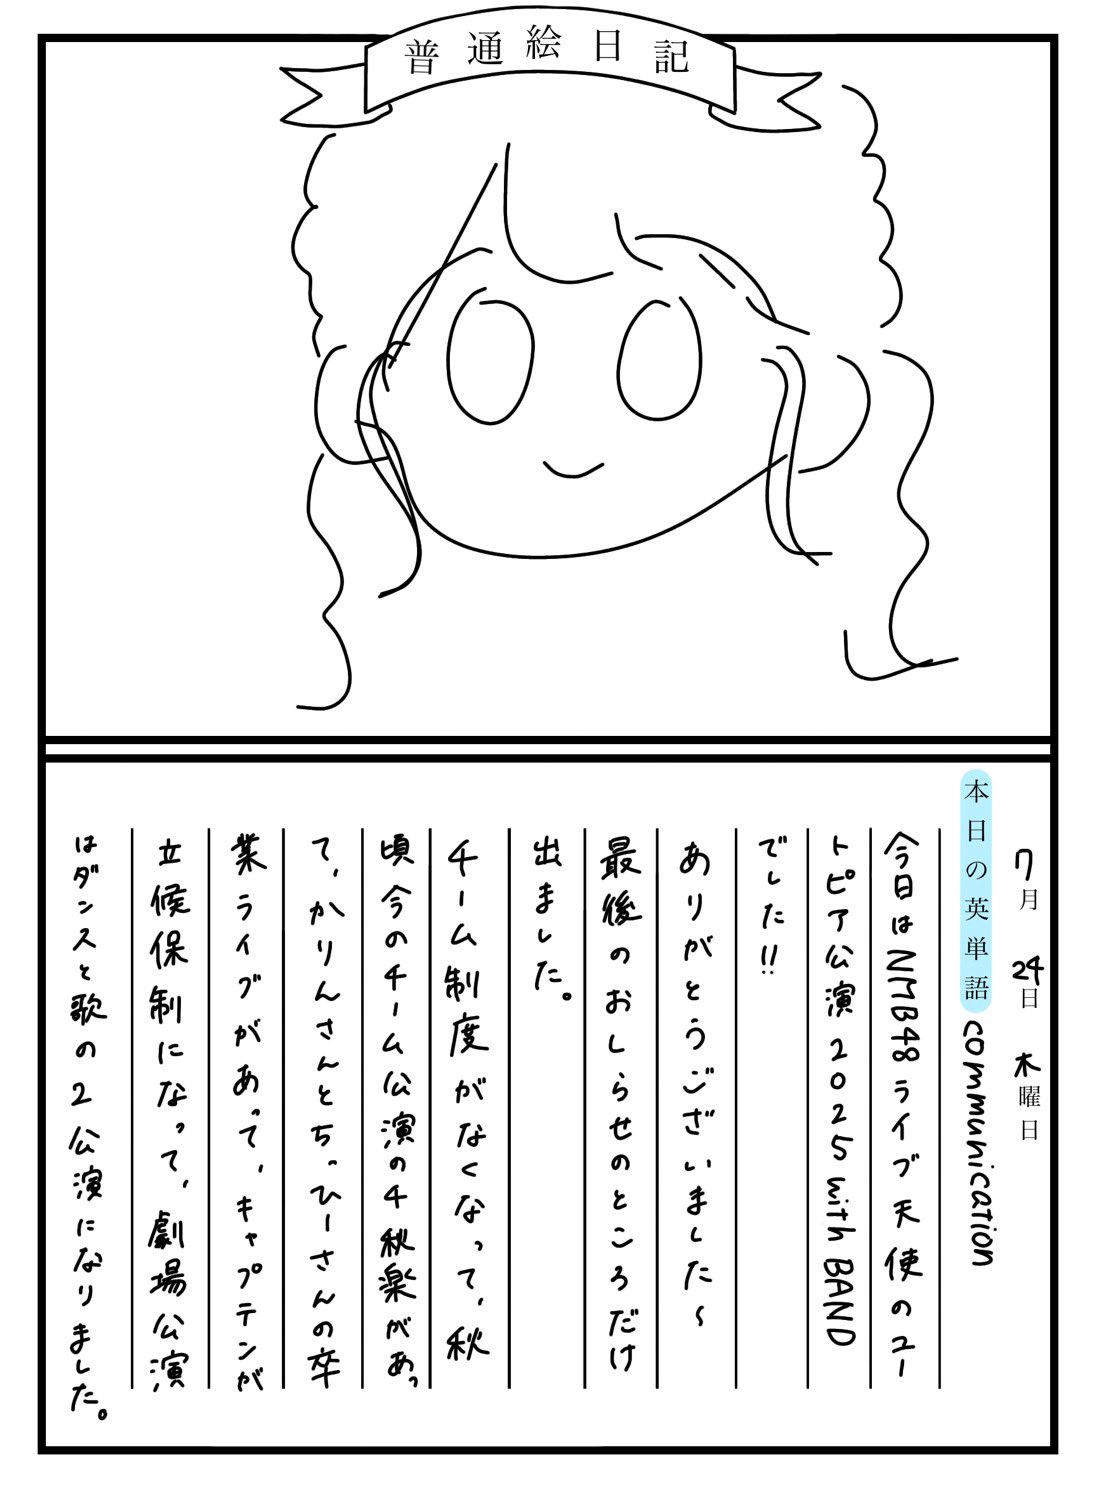 普通絵日記
7月24日木曜日
本日の英単語 communication
今日はNMB48ライブ天使のユー
トピア公演2025 with BAND
でした!!
ありがとうございました〜
最後のおしらせのところだけ
出ました。
チーム制度がなくなって、秋
頃今のチーム公演の千秋楽があっ
て、かりんさんとちっひーさんの卒
業ライブがあって、キャプテンが
立候保制になって、劇場公演
はダンスと歌の2公演になりました。